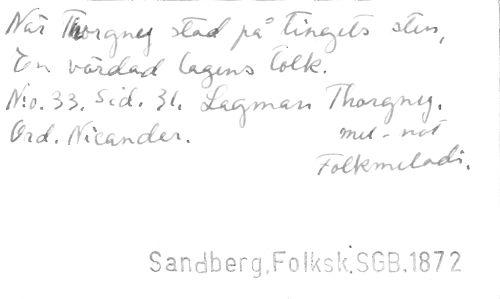 När Thorgney stod på tingets sten,
En vördad lagens tolk.
N:o. 33. Sid. 31. Lagman Thorgney.
Ord. Nicander.
mel-not
Folkmelodi.
Sandberg.Folksk.SGB.1872